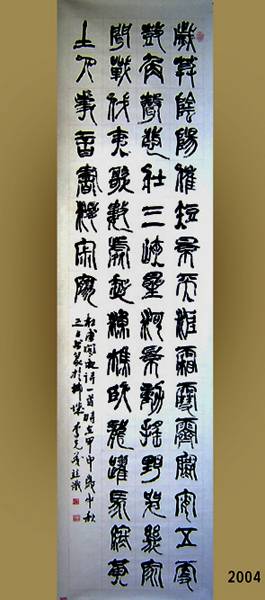 歲暮陰陽催短景天涯霜雪霽寒宵五更
鼓角聲悲壯三峽星河影動搖野哭幾家
聞戰伐夷歌數處起漁樵臥龍躍馬終黃
土人事音書漫寂寥
杜甫閣夜詩一首時在甲申歲中秋
2004